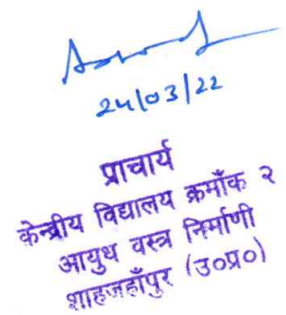 24/03/22
प्राचार्य
केन्द्रीय विद्यालय क्रमाँक २
आयुध वस्त्र निर्माणी
शाहजहाँपुर (उ०प्र०)